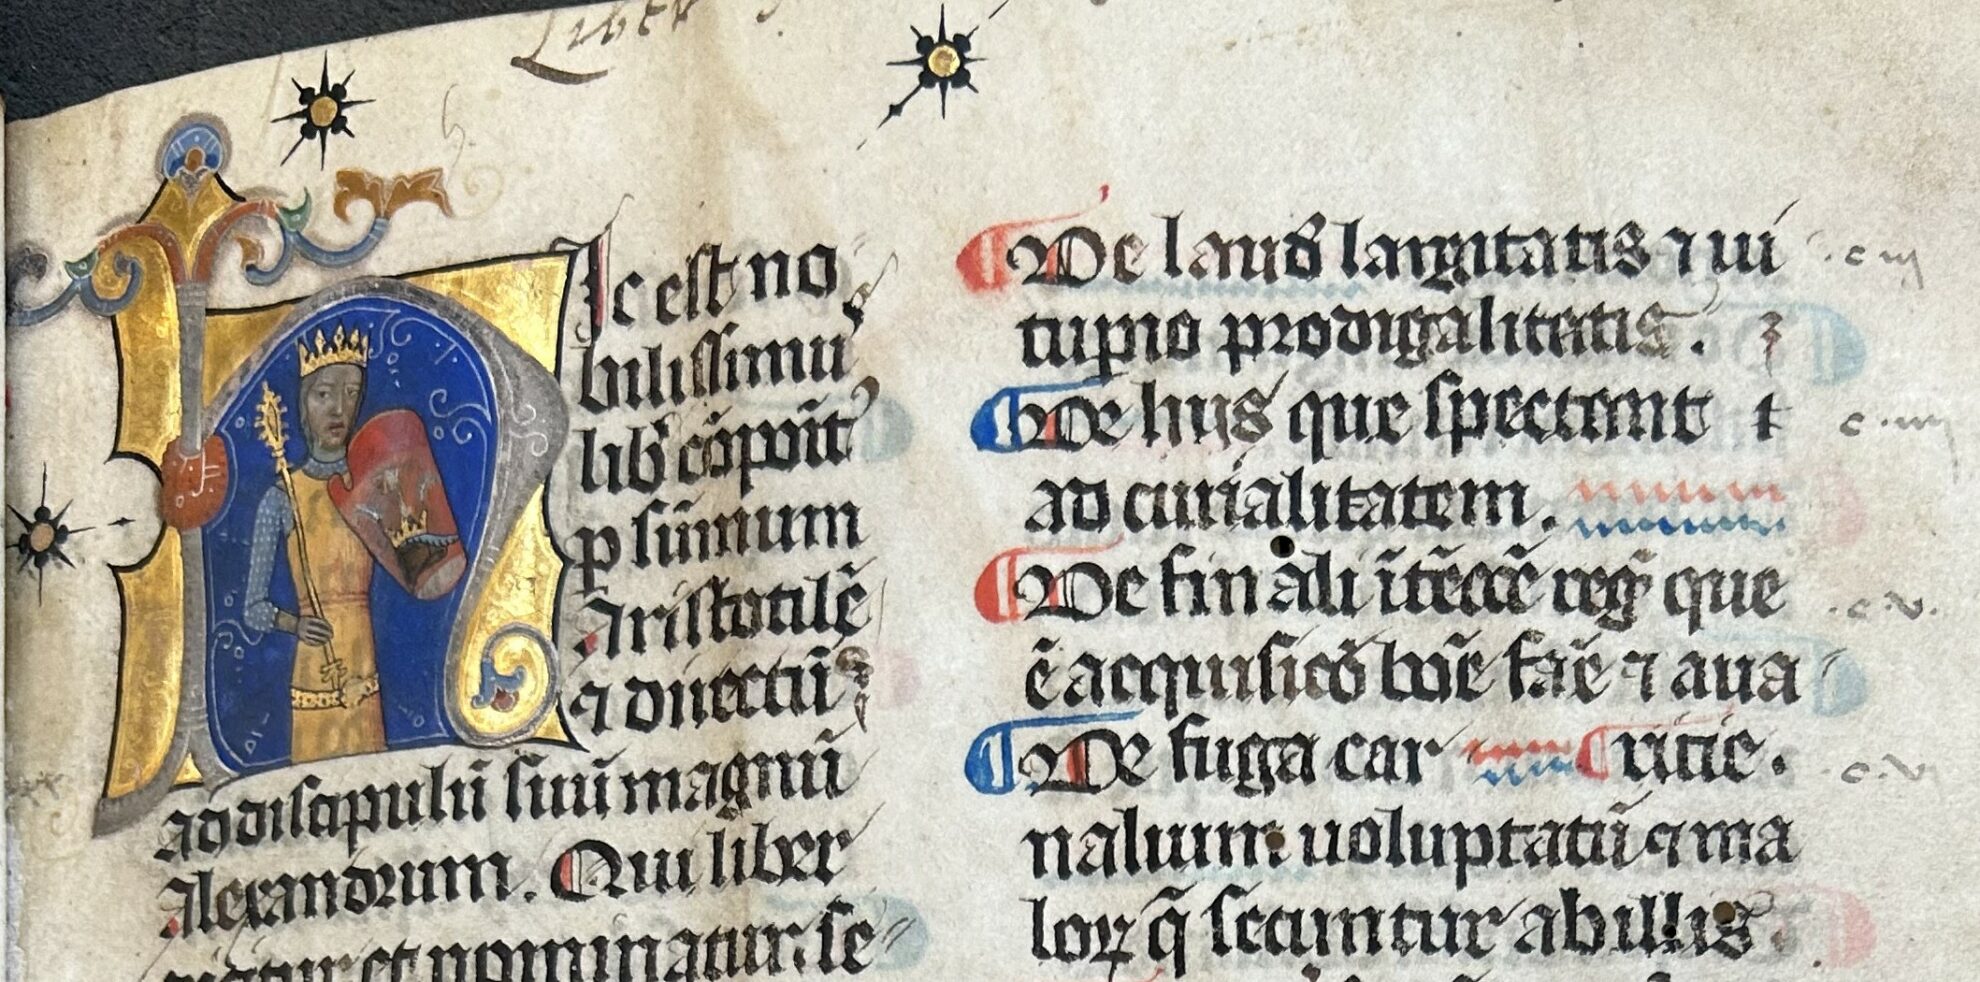 Liber
Ic est no
bilissimu
lib' cōpoīt'
p sūmum
Aristotilē
⁊ directū
ad discipulū suū magnū
Alexandrum. Qui liber
et nominatur se
De laud' largitatis ⁊ ui
tupio prodigalitatis.
De hus que spectant t
ad curialitatem.
De finali ītēcōē reg' que
ē acquisicō boē faē ⁊ aua
De fuga car ricie.
nalium uoluptatū ⁊ ma
loꝝ q̄ secuntur ab illis
c iij
c. iiij
.c. v.
c. vi